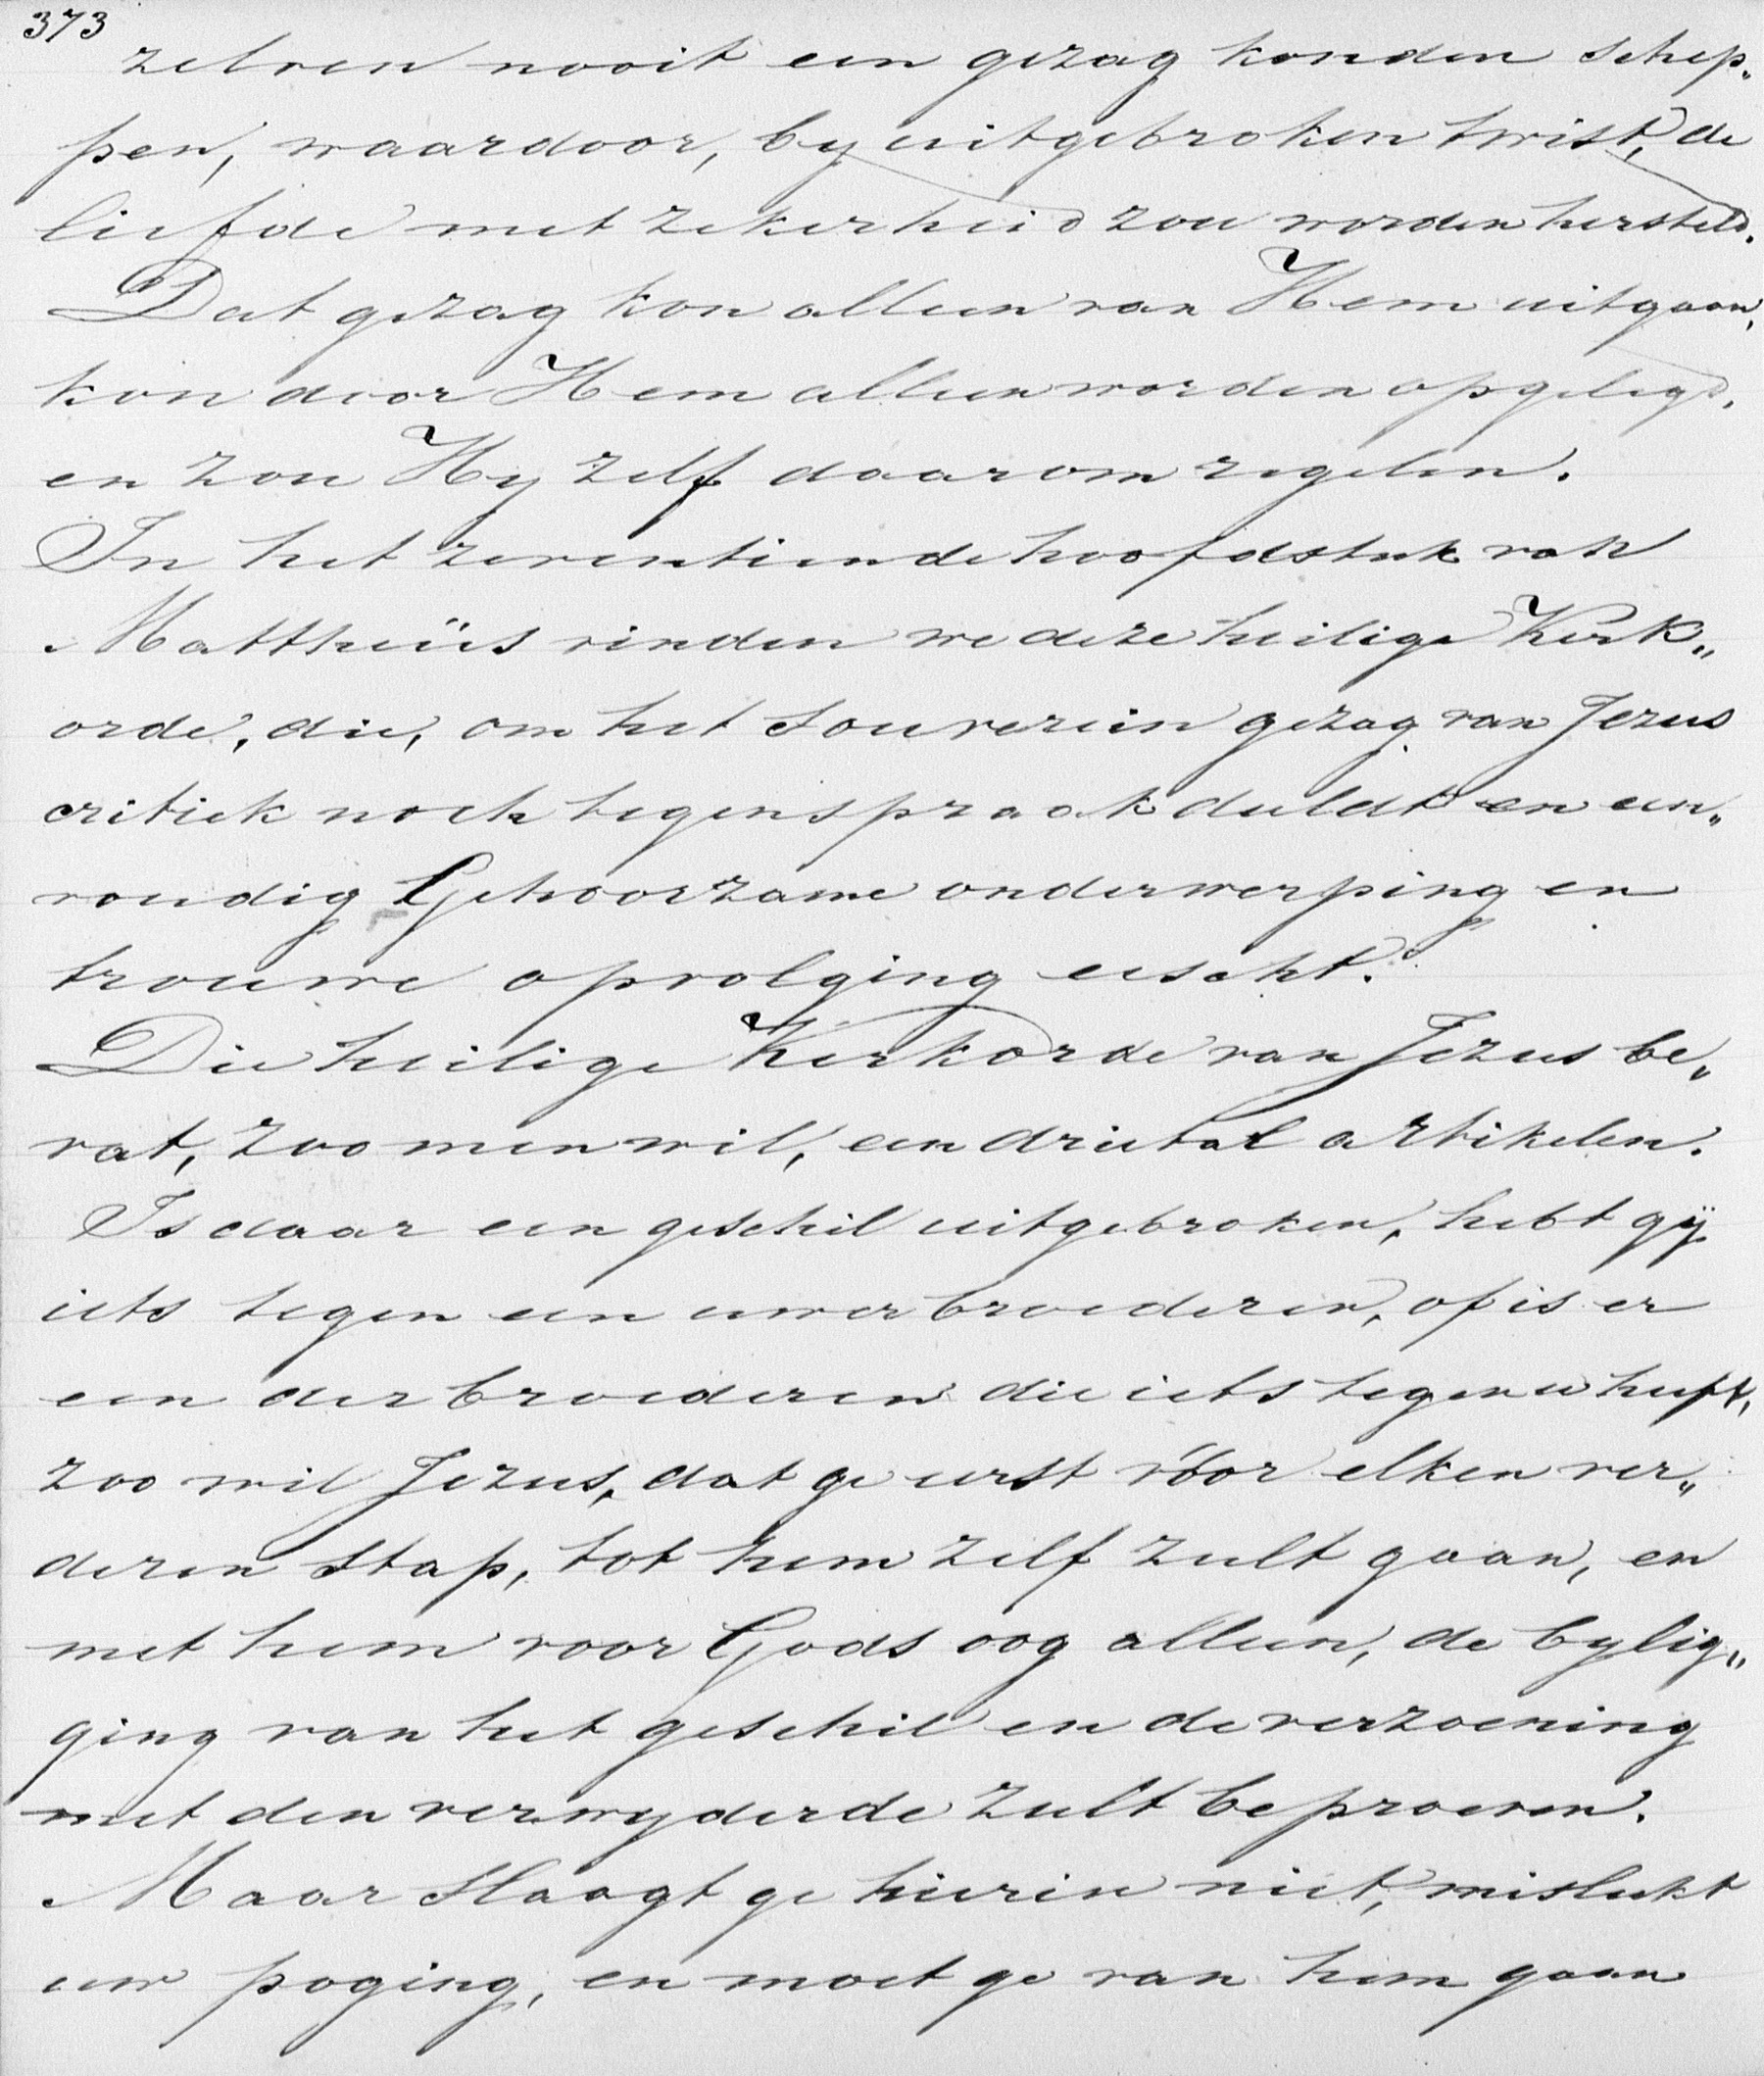 373
zelven nooit een gezag konden schep„
pen, waardoor, by uitgebroken twist, de
liefde met zekerheid zou worden hersteld.
Dat gezag kon alleen van Hem uitgaan,
kon door Hem alleen worden opgelegd,
en zou Hy zelf daarom regelen.
In het zeventiende hoofdstuk van
Mattheüs vinden we deze heilige Kerk„
orde, die, om het souverein gezag van Jezus
critiek noch tegenspraak duldt en een„
voudig Gehoorzame onderwerping en
trouwe opvolging eischt.
Die heilige Kerkorde van Jezus be„
vat, zoo men wil, een drietal artikelen.
Is daar een geschil uitgebroken, hebt gÿ
iets tegen een uwer broederen, of is er
een der broederen die iets tegen u heeft,
zoo wil Jezus, dat ge eerst vóór elken ver„
deren stap, tot hem zelf zult gaan, en
met hem voor Gods oog alleen, de bylig„
ging van het geschil en de verzoening
met den verwyderde zult beproeven.
Maar slaagt ge hierin niet, mislukt
uw poging, en moet ge van hem gaan